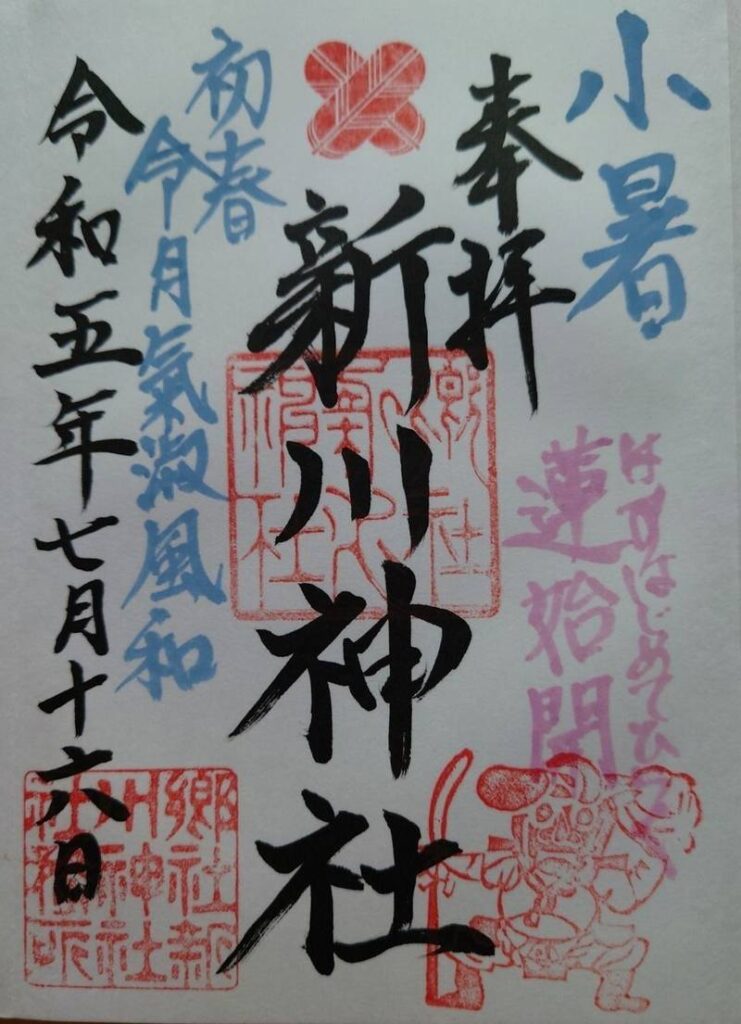 小暑
奉拝
はすはじめてひらく
蓮始開
新川神社
初春
令月氣淑風和
令和五年七月十六日
郷社新
川神社
社務所